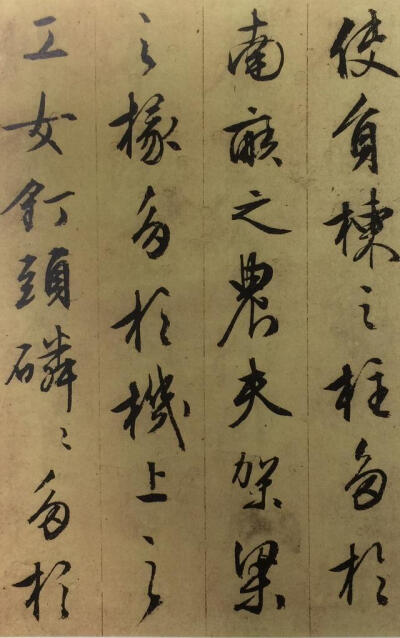 使負棟之柱多於
南畝之農夫架梁
之椽多於機上之
工女釘頭磷〻多於